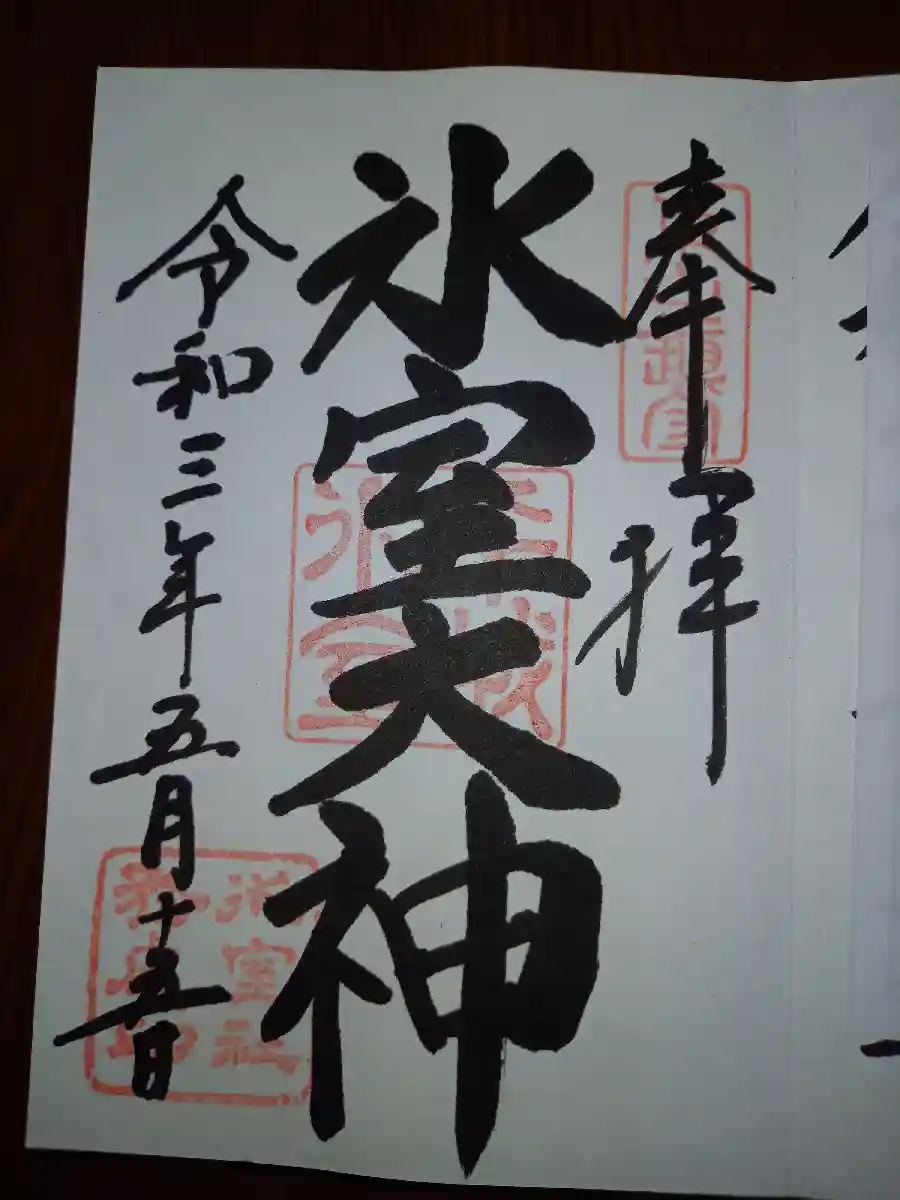 奉拝
氷室大神
令和三年五月十五日
氷室社